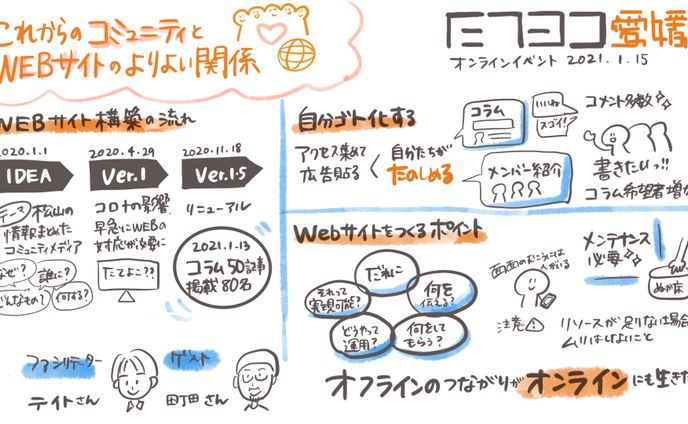 これからのコミュニティと
WEBサイトのよりよい関係
タテヨコ愛媛
オンラインイベント 2021.1.15
WEBサイト構築の流れ
2020.1.1
2020.4.29
2020.11.18
IDEA
Ver.1
Ver.1.5
テーマ 松山の
情報まとめた
コミュニティメディア
なぜ?
誰に?
どんなもの?
何する?
コロナの影響
早急にWEBの
対応が必要に
たてよこ??
リニューアル
2021.1.13
コラム50記事
掲載80名
ファシリテーター
テイトさん
ゲスト
田丁田さん
自分ゴト化する
アクセス集めて
広告貼る
<
自分たちが
たのしめる
コラム
いいね
スゴイ!
メンバー紹介
コメント多数
書きたいっ!!
コラム希望者増
Webサイトをつくるポイント
だれに
何を
伝える?
何をして
もらう?
どうやって
運用?
それって
実現可能?
画面のむこうには
人がいる
メンテナンス
必要
ぬか床
注意
リソースが足りない場合
ムリはしないこと
オフラインのつながりがオンラインにも生きた